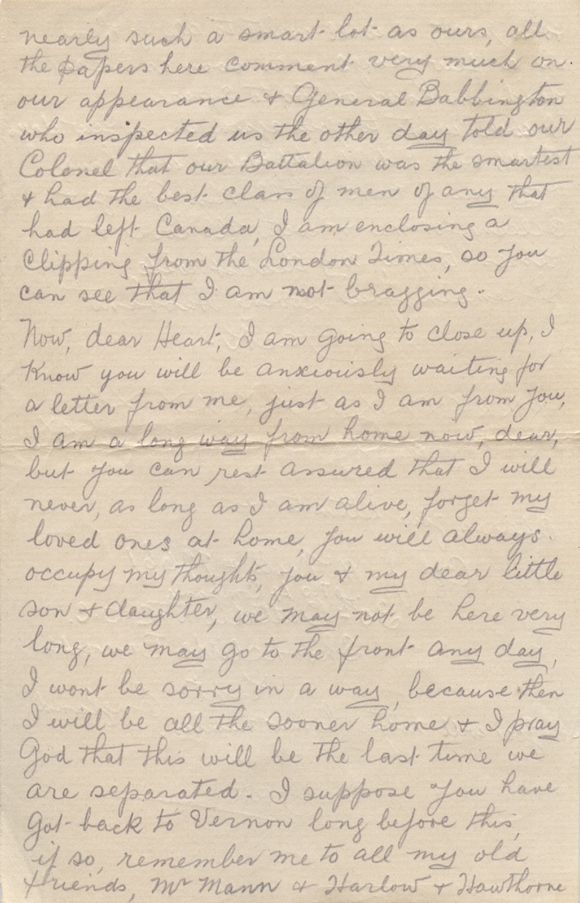 nearly such a smart lot as ours, all
the papers here comment very much on
our appearance & General Babbington
who inspected us the other day told our
Colonel that our Battalion was the smartest
& had the best class of men of any that
had left Canada, I am enclosing a
clipping from the London Times, so you
can see that I am not bragging.
Now, dear Heart, I am going to close up, I
know you will be anxiously waiting for
a letter from me, just as I am from you,
I am a long way from home now, dear,
but you can rest assured that I will
never, as long as I am alive, forget my
loved ones at home, you will always
occupy my thoughts, you & my dear little
son & daughter, we may not be here very
long, we may go to the front any day,
I wont be sorry in a way, because then
I will be all the sooner home & I pray
God that this will be the last time we
are separated. I suppose you have
got back to Vernon long before this,
if so, remember me to all my old
friends, Mr Mann & Harlow & Hawthorne